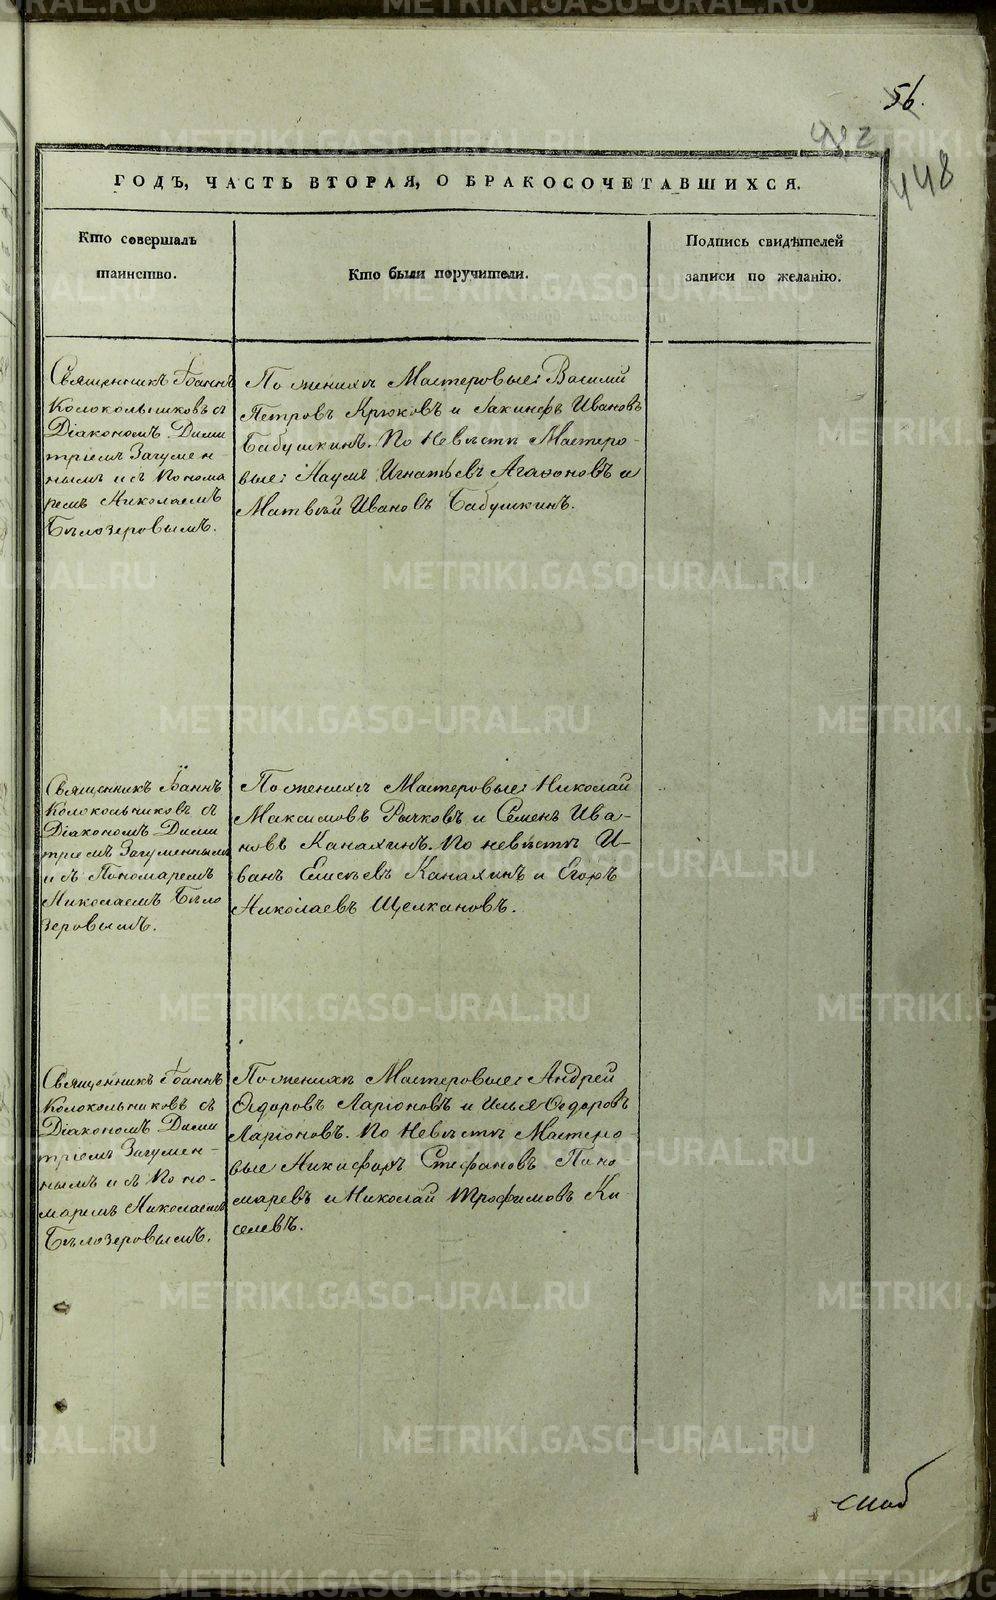 56.
482
448
ГОДЪ, ЧАСТЬ ВТОРАЯ, О БРАКОСОЧЕТАВШИХСЯ.
Кто совершалъ
таинство.
Кто были поручители.
Подпись свидѣтелей
записи по желанію.
Священникъ Іоаннъ
Колокольниковъ съ
Діакономъ Дими
тріемъ Загумен
нымъ и съ Понома
ремъ Николаемъ
Бѣлозеровымъ.
По женихѣ Мастеровые: Василій
Петровъ Крюковъ и Іакинфъ Ивановъ
Бабушкинъ. По Невѣстѣ Мастеро-
вые: Наумъ Игнатьевъ Агафоновъ и
Матвѣй Ивановъ Бабушкинъ.
Священникъ Іоаннъ
Колокольчиковъ съ
Діакономъ Дими
тріемъ Загуменнымъ
и съ Пономаремъ
Николаемъ Бѣло
зеровымъ.
По женихѣ Мастеровые: Николай
Максимовъ Рычковъ и Семенъ Ива-
новъ Канахинъ. По невѣстѣ И-
ванъ Елисѣевъ Канахинъ и Егоръ
Николаевъ Щелкановъ.
Священникъ Іоаннъ
Колокольниковъ съ
Діакономъ Дими
тріемъ Загумен-
нымъ и съ Поно-
маремъ Николаемъ
Бѣлозеровымъ.
По женихѣ Мастеровые: Андрей
Ѳедоровъ Ларіоновъ и Илья Ѳедоровъ
Ларіоновъ. По Невѣстѣ Мастеро-
вые Никифоръ Стефановъ Поно
маревъ и Николай Трофимовъ Ки
селевъ.
METRIKI.GASO-URAL.RU